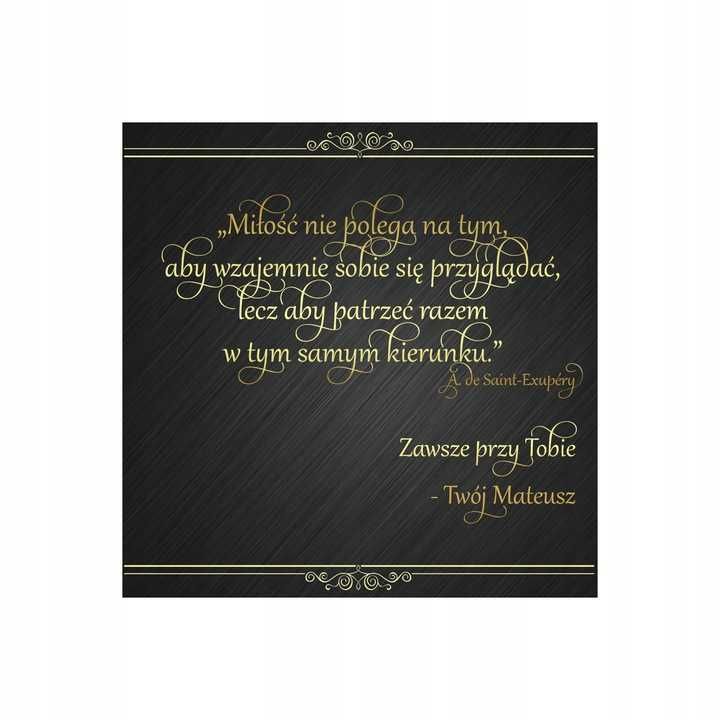 „Miłość nie polega na tym,
aby wzajemnie sobie się przyglądać,
lecz aby patrzeć razem
w tym samym kierunku.”
A. de Saint-Exupéry
Zawsze przy Tobie
- Twój Mateusz